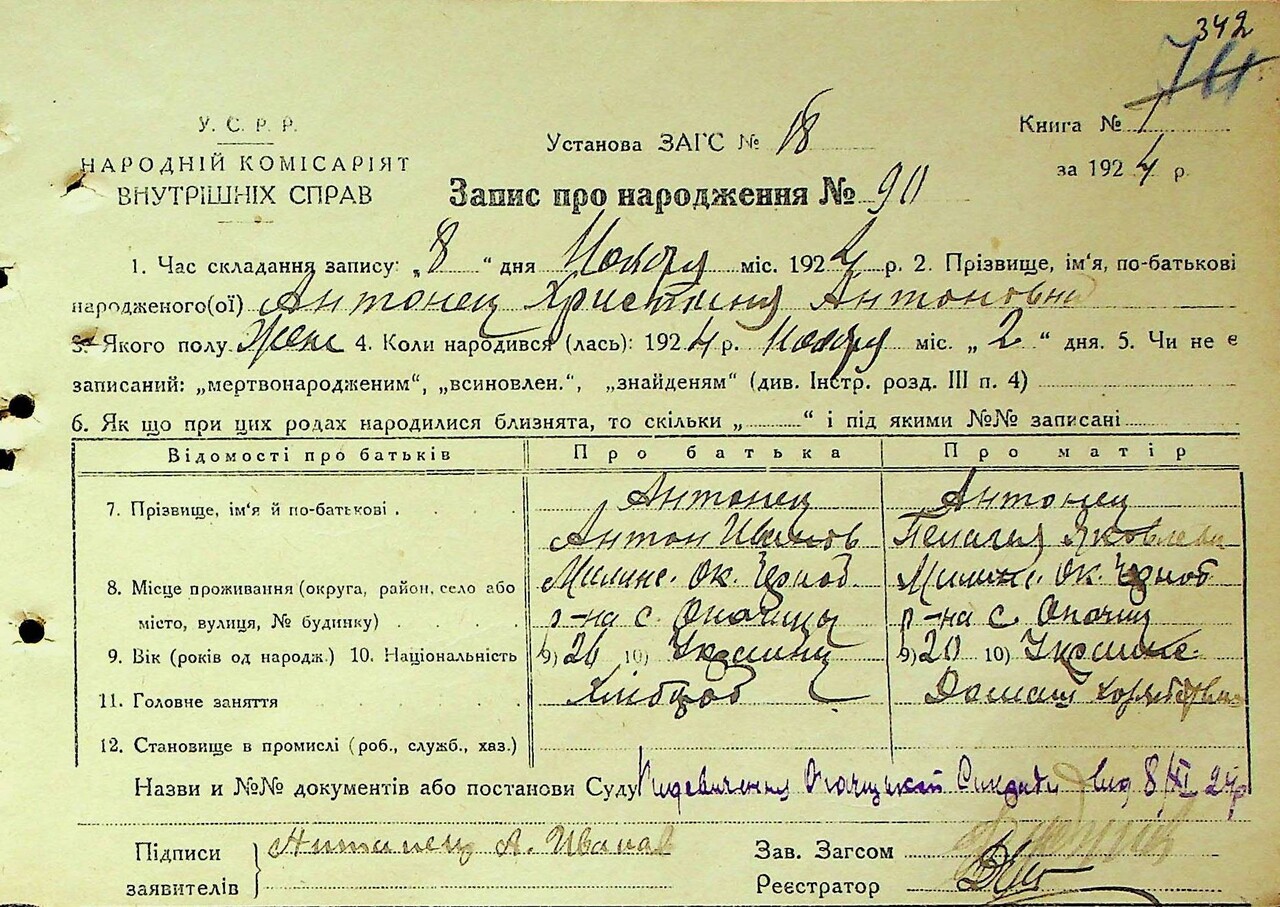 342
У. С. Р. Р.
НАРОДНІЙ КОМІСАРІЯТ
ВНУТРІШНІХ СПРАВ
Установа ЗАГС № 18
Книга № 1
за 1924 р.
Запис про народження № 90
1. Час складання запису: „8“ дня міс. 1924 р. 2. Прізвище, ім'я, по-батькові
народженого(ої) Антонец Христина Антоновна
3. Якого полу жен 4. Коли народився (лась): 1924 р. міс. „2“ дня. 5. Чи не є
записаний: „мертвонародженим“, „всиновлен.“, „знайденям“ (див. Інстр. розд. III п. 4)
6. Як що при цих родах народилися близнята, то скільки „ “ і під якими №№ записані
Відомості про батьків Про батька Про матір
7. Прізвище, ім'я й по-батькові Антонец Антонец
Антон Иванов Пелагея Яковлевн
8. Місце проживання (округа, район, село або Ок. Ок.
місто, вулиця, № будинку) р-на с. р-на с.
9. Вік (років од народж.) 10. Національність 9) 26 10) 9) 20 10)
11. Головне заняття Хлібороб
12. Становище в промислі (роб., служб., хаз.)
Назви и №№ документів або постанови Суду від 8/XI 24р
Підписи Антонец А. Иванов Зав. Загсом
заявителів Реєстратор